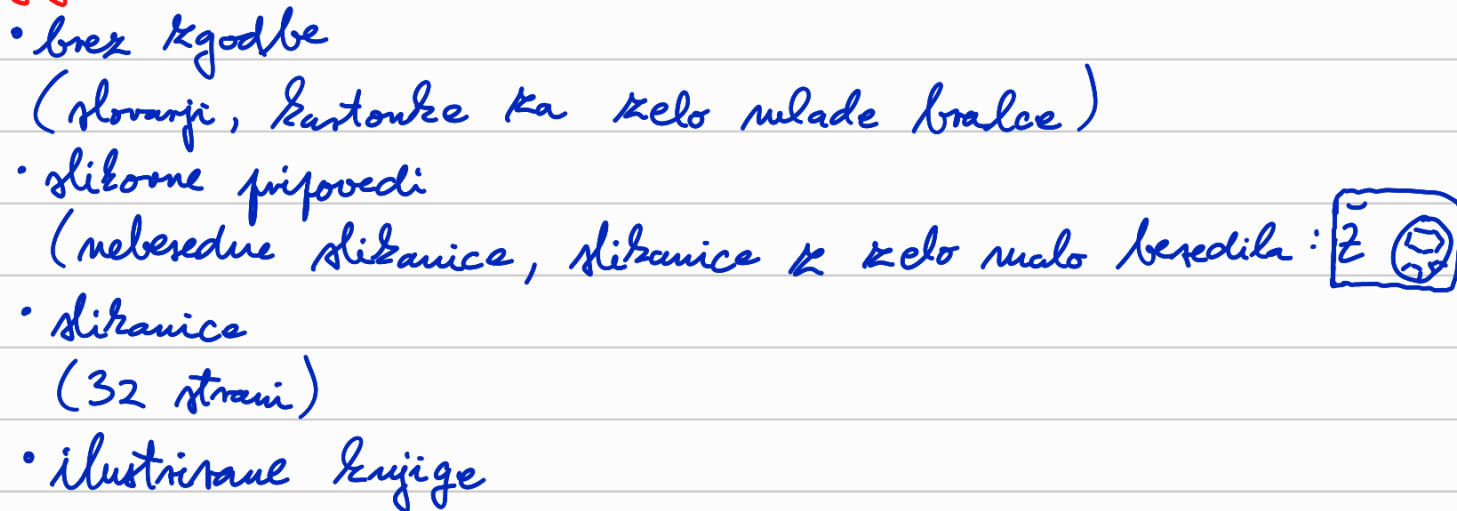 • brez zgodbe
(slovarji, kartonke za zelo mlade bralce)
• slikovne pripovedi
(nebesedne slikanice, slikanice z zelo malo besedila: Ž
• slikanice
(32 strani)
• ilustrirane knjige